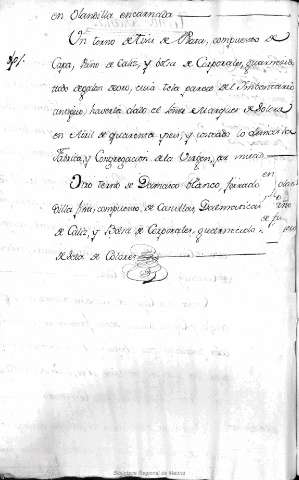 en olandilla encarnada
Un terno de de Rosa, compuesto de
Capa, Paño de Caliz, y bolsa de Corporales, guarnecido
todo de galon de oro, cuia tela parece del Imbentario
antiguo, haverla dado el Señor Marques de
en Abril de quarenta y seis, y costeado lo demas la
Fabrica, y Congregacion de la Virgen,
Otro terno de Damasco blanco, forrado en olan
dilla fina, compuesto de Casullas, Dalmaticas paño
de Caliz, y Bolsa de Corporales, guarnecido
de seda de Colores
Biblioteca Regional de Murcia